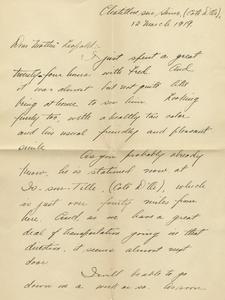 Chatillon sur Seine, (Cote D'Or),
12 March 1919.
Dear "Mother" Leopold:-
I just spent a great
twenty-four hours with Fred. And
it was almost but not quite like
being at home to see him. Looking
finely too, with a healthy tan color
and his usual friendly and pleasant
smile.
As you probably already
know, he is stationed now at
Is-sur-Tille, (Cote D'Or), which
is just over forty miles from
here. And as we have a great
deal of transportation going in that
direction, it seems almost next
door.
I will be able to go
down in a week or so. As soon